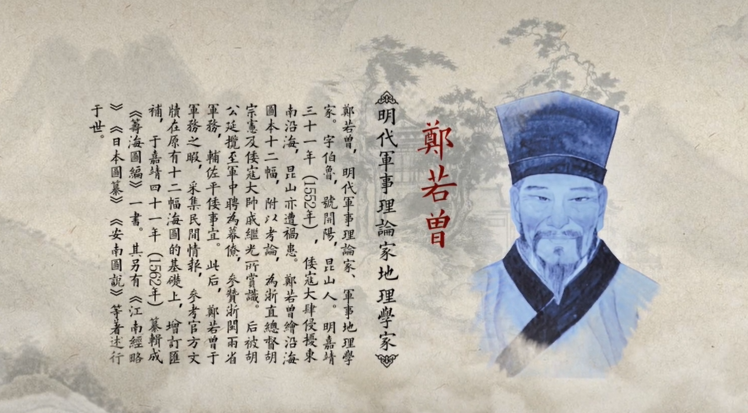 鄭若曾
明代軍事理論家地理學家
鄭若曾，明代軍事理論家、軍事地理學
家。字伯魯，號開陽，昆山人。明嘉靖
三十一年（1552年），倭寇大肆侵擾東
南沿海，昆山亦遭禍患。鄭若曾繪沿海
圖本十二幅，附以考論，為浙直總督胡
宗憲及倭寇大帥戚繼光所賞識。后被胡
公延攬至軍中聘為幕僚，參贊浙閩兩省
軍務，輔佐平倭事宜。此后，鄭若曾于
軍務之暇，采集民間情報，參考官方文
牘在原有十二幅海圖的基礎上，增訂匯
補，于嘉靖四十一年（1562年）纂輯成
《籌海圖編》一書。其另有《江南經略
》《日本圖纂》《安南圖說》等著述行
于世。